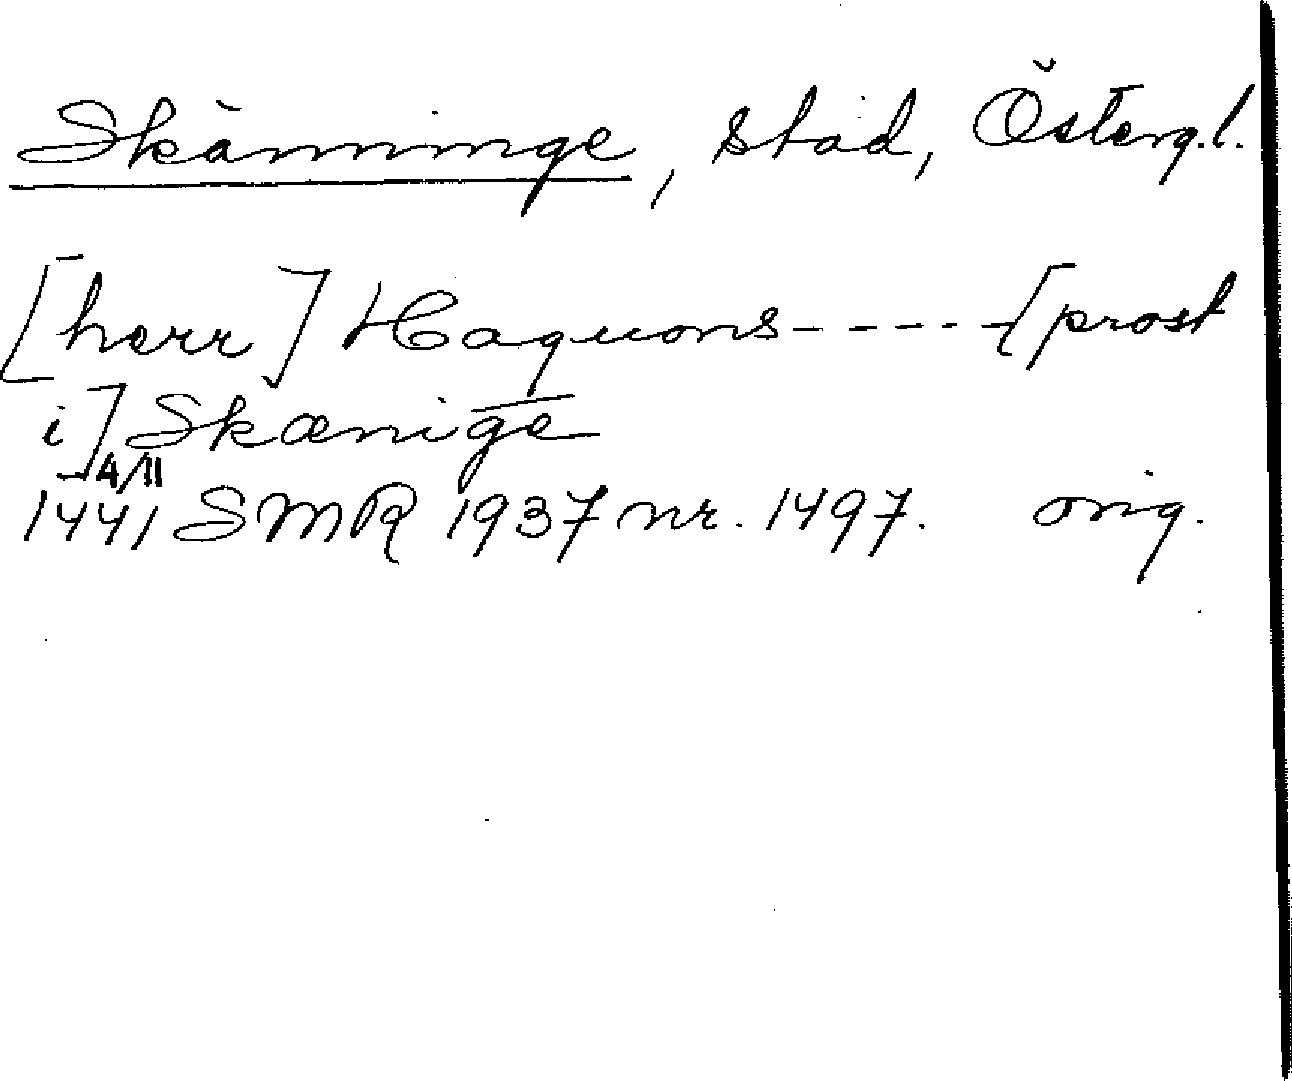 Skänninge, stad, Österg.l.
[herr] Haquons - - - - - [prost
i] Skænige
4/11
1441 SMR 1937 nr. 1497. orig.